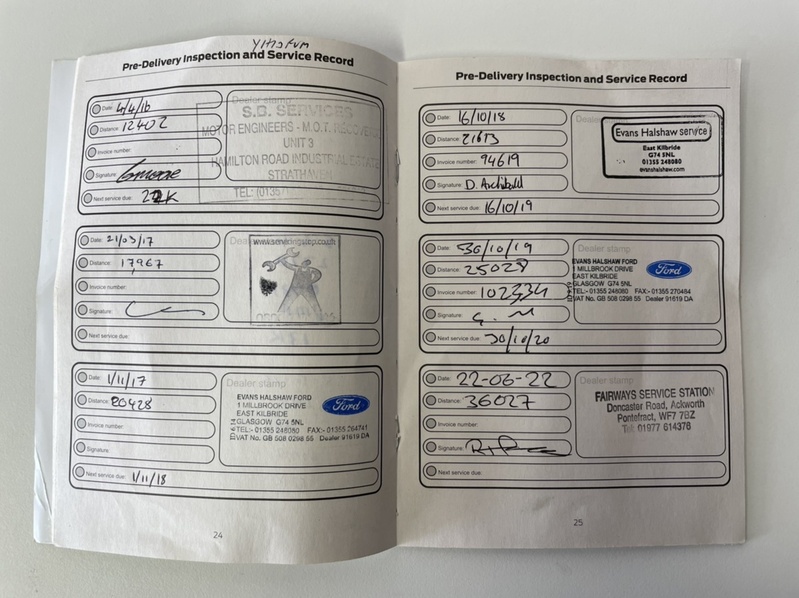 Pre-Delivery Inspection and Service Record
Date: 4/4/16
Distance: 12402
Invoice number:
Signature:
Next service due:
Dealer stamp
S.B. SERVICES
MOTOR ENGINEERS - M.O.T. RECOVERY
UNIT 3
HAMILTON ROAD INDUSTRIAL ESTATE
STRATHAVEN
TEL: (01357
Date: 21/03/17
Distance: 17,967
Invoice number:
Signature:
Next service due:
Dealer
Date: 1/11/17
Distance: 20428
Invoice number:
Signature:
Next service due: 1/11/18
Dealer stamp
EVANS HALSHAW FORD
1 MILLBROOK DRIVE
EAST KILBRIDE
GLASGOW G74 5NL
TEL:- 01355 248080 FAX:- 01355 264741
VAT No. GB 508 0298 55 Dealer 91619 DA
Ford
24
Pre-Delivery Inspection and Service Record
Date: 16/10/18
Distance:
Invoice number: 94619
Signature: D. Archibald
Next service due: 16/10/19
Dealer
Evans Halshaw service
East Kilbride
G74 5NL
01355 248080
evanshalshaw.com
Date: 30/10/19
Distance: 25028
Invoice number: 102334
Signature: G. M
Next service due: 30/10/20
Dealer stamp
EVANS HALSHAW FORD
1 MILLBROOK DRIVE
EAST KILBRIDE
GLASGOW G74 5NL
TEL:- 01355 248080 FAX:- 01355 270484
VAT No. GB 508 0298 55 Dealer 91619 DA
Ford
Date: 22-06-22
Distance: 36027
Invoice number:
Signature:
Next service due:
Dealer stamp
FAIRWAYS SERVICE STATION
Doncaster Road, Ackworth
Pontefract, WF7 7BZ
Tel: 01977 614376
25